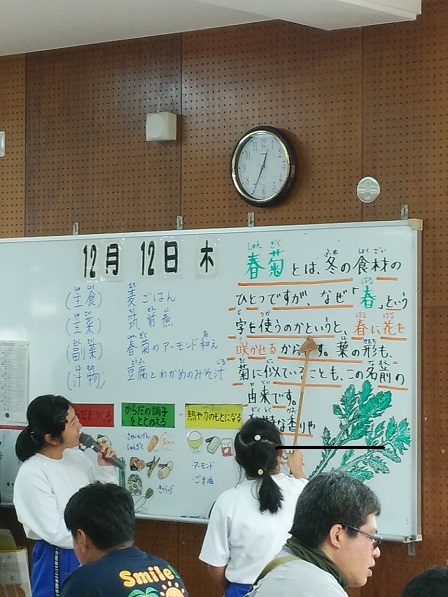 12月 12日 木
(主食) 麦ごはん
(主菜) 筑前煮
(副菜) 春菊のアーモンド和え
(汁物) 豆腐とわかめのみそ汁
春菊とは、冬の食材の
ひとつですが、なぜ「春」という
字を使うのかというと、春に花を
咲かせるからです。葉の形も、
菊に似ていることも、この名前の
由来です。
な香りや
からだの調子
をととのえる
熱や力のもとになる
アーモンド
ごま油
Smile